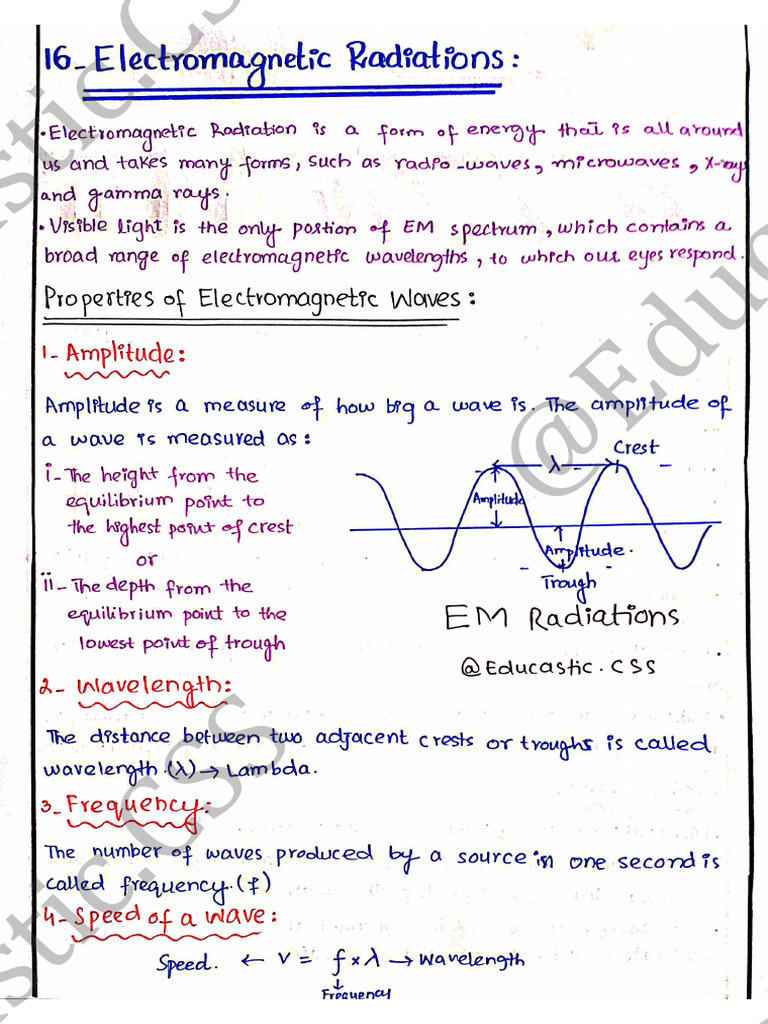 16- Electromagnetic Radiations:
• Electromagnetic Radiation is a form of energy that is all around
us and takes many forms, such as radio-waves, microwaves, X-rays
and gamma rays.
• Visible light is the only postion of EM spectrum, which contains a
broad range of electromagnetic wavelengths, to which our eyes respond.
Properties of Electromagnetic Waves:
1- Amplitude:
Amplitude is a measure of how big a wave is. The amplitude of
a wave is measured as:
i- The height from the
equilibrium point to
the highest point of crest
or
ii- The depth from the
equilibrium point to the
lowest point of trough
Crest
λ
Amplitude
Amplitude.
Trough
EM Radiations
@Educastic.CSS
2- Wavelength:
The distance between two adjacent crests or troughs is called
wavelength.(λ) → Lambda.
3- Frequency:
The number of waves produced by a source in one second is
called frequency.(f)
4- Speed of a wave:
Speed. ← V = f × λ → Wavelength
↓
Frequency
@Educ
stic.CSS
stic.CSS